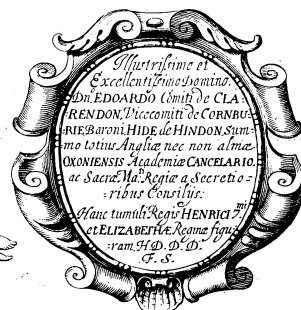 Illustrissimo et
Excellentissimo Domino.
Dn. EDOARDO Comiti de CLA-
RENDON, Vicecomiti de CORNBU-
RIE, Baroni HIDE de HINDON, Sum-
mo totius Angliæ nec non almæ
OXONIENSIS Academiæ CANCELARIO.
ac Sacræ Mas. Regiæ a Secretio-
ribus Consilijs:
Hanc tumuli Regis HENRICI 7mi
et ELIZABETHÆ Reginæ figu-
ram. H D. D. D.
F. S.